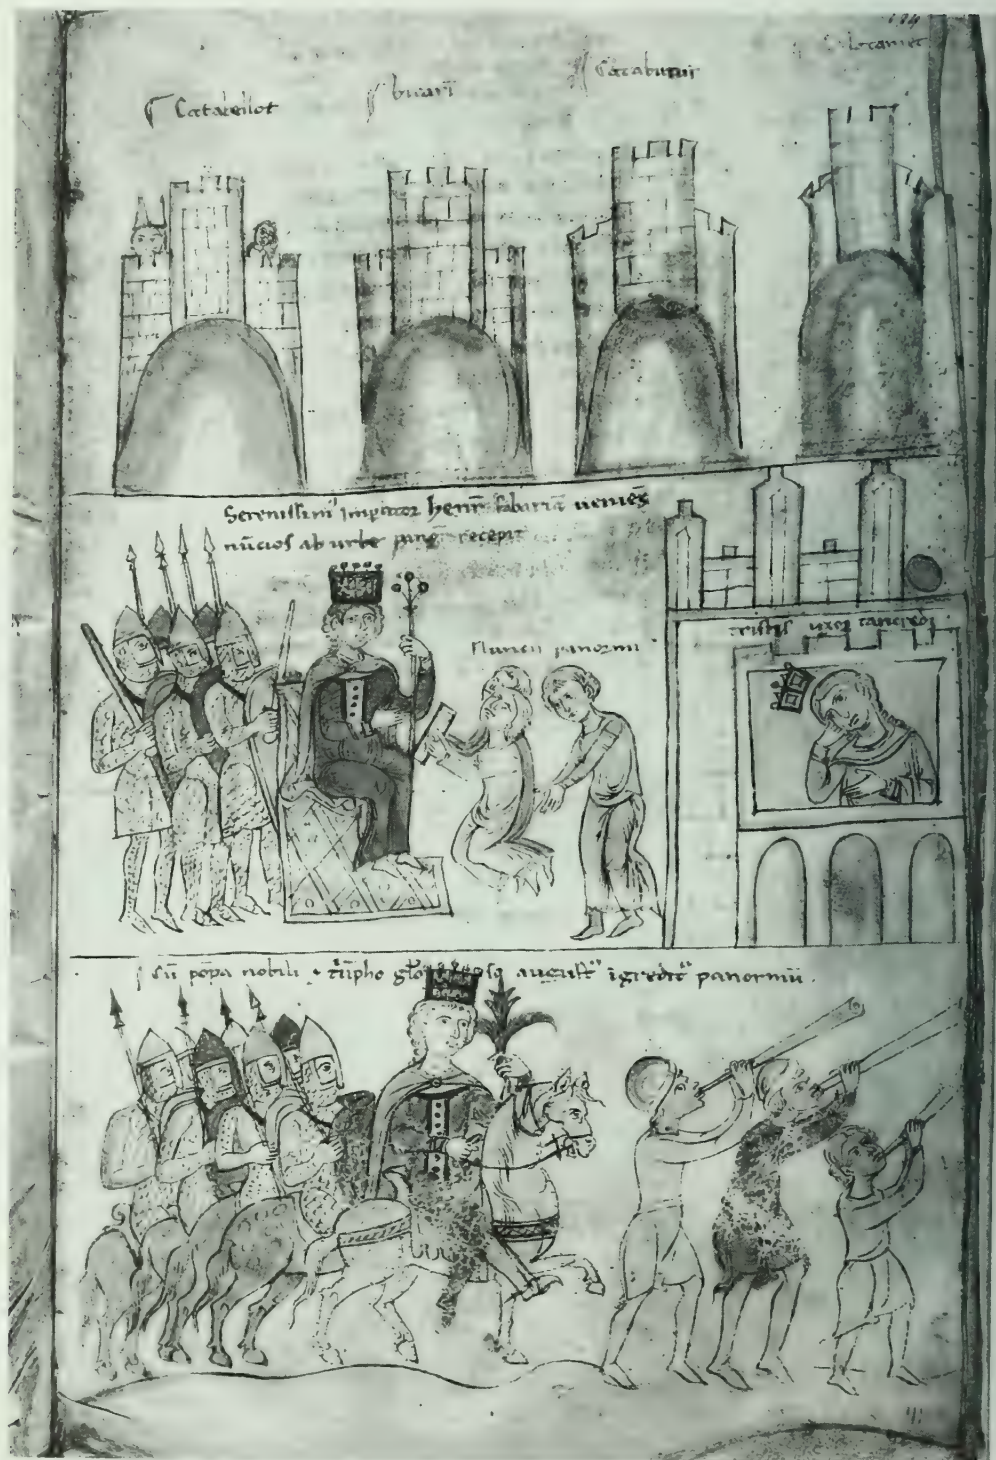 134
Calatamet
Catabutur
bicari
Catabellot
Serenissim' Imperator henr' fabariā ueniēs
nūcios ab urbe recepit
Nuncii panormi
tristis uxor tancredi
cū pōpa nobili triūpho gl'o august' īgredit' panormū.